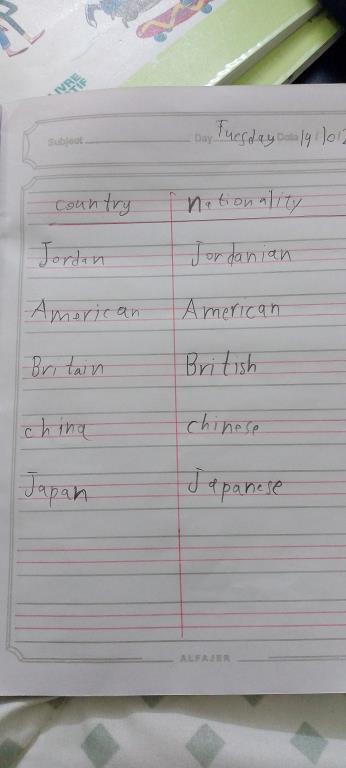 LIVRE
Subject Day Tuesday Date 19/
country nationality
Jordan Jordanian
American American
Britain British
china chinese
Japan Japanese
ALFAJER